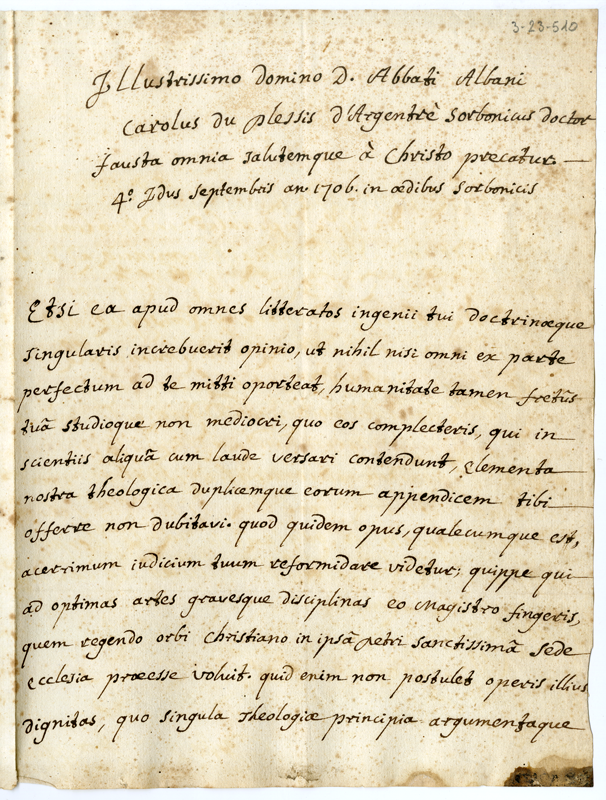 3-23-510
Illustrissimo Domino D. Abbati Albani
Carolus du plessis d'Argentrè Sorbonicus doctor
fausta omnia salutemque à Christo precatur.
4º Idus Septembris an. 1706. in ædibus Sorbonicis
Etsi ea apud omnes litteratos ingenii tui doctrinæque
singularis increbuerit opinio, ut nihil nisi omni ex parte
perfectum ad te mitti oporteat, humanitate tamen fretus
tuâ studioque non mediocri, quo eos complecteris, qui in
scientiis aliquâ cum laude versari contendunt, Elementa
nostra theologica duplicemque eorum appendicem tibi
offerre non dubitavi. quod quidem opus, qualecumque est,
acerrimum iudicium tuum reformidare videtur; quippe qui
ad optimas artes gravesque disciplinas eo Magistro fingeris,
quem regendo orbi Christiano in ipsâ petri sanctissimâ Sede
Ecclesia præesse voluit. quid enim non postulet operis illius
dignitas, quo singula Theologiæ principia argumentaque